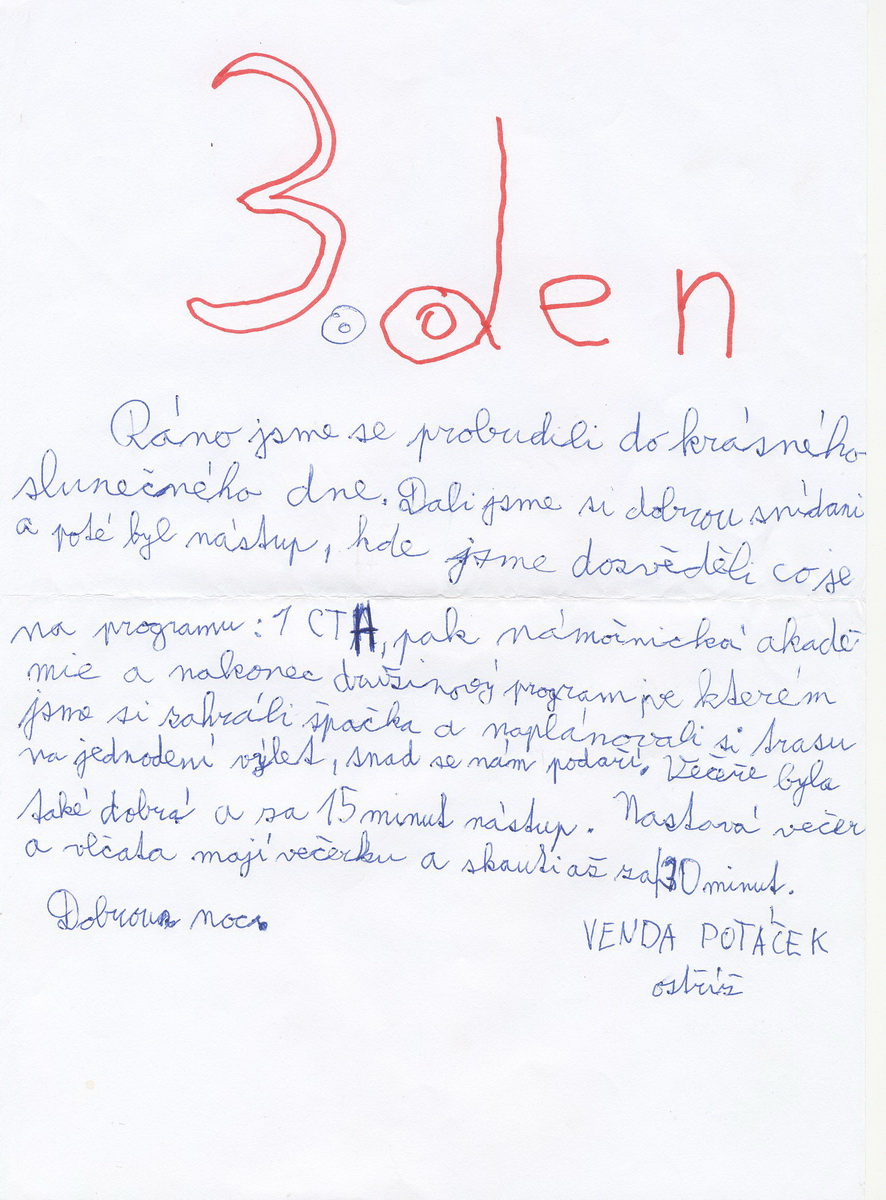 3. den
Ráno jsme se probudili do krásného
slunečného dne. Dali jsme si dobrou snídani
a poté byl nástup, kde jsme dozvěděli co je
na programu: 1 CTH, pak námořnická akadé
mie a nakonec družinový program ve kterém
jsme si zahráli špačka a naplánovali si trasu
na jednodení výlet, snad se nám podaří. Večeře byla
také dobrá a za 15 minut nástup. Nastavá večer
a vlčata mají večerku a skauti až za 30 minut.
Dobrou noc.
VENDA POTÁČEK
ostříž